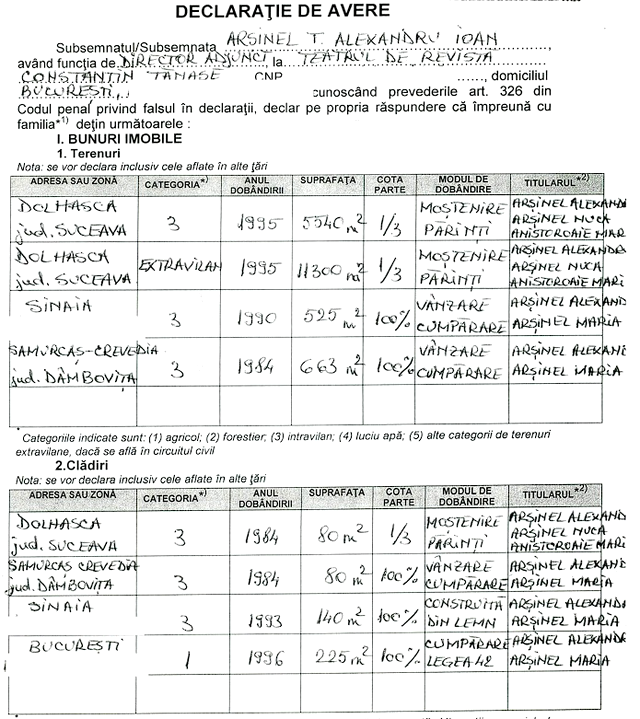 DECLARAŢIE DE AVERE
Subsemnatul/Subsemnata ARȘINEL T. ALEXANDRU IOAN
având funcţia de DIRECTOR ADJUNCT la TEATRUL DE REVISTĂ
CONSTANTIN TĂNASE CNP, domiciliul
BUCUREȘTI, cunoscând prevederile art. 326 din
Codul penal privind falsul în declaraţii, declar pe propria răspundere că împreună cu
familia*1) deţin următoarele :
I. BUNURI IMOBILE
1. Terenuri
Nota: se vor declara inclusiv cele aflate în alte ţări
ADRESA SAU ZONĂ CATEGORIA*) ANUL DOBÂNDIRII SUPRAFAŢA COTA PARTE MODUL DE DOBÂNDIRE TITULARUL*2)
DOLHASCA jud. SUCEAVA 3 1995 5540 m2 1/3 MOȘTENIRE PĂRINȚI ARȘINEL ALEXAND ARȘINEL NUCA ANISTOROAIE MAR
DOLHASCA jud. SUCEAVA EXTRAVILAN 1995 11300 m2 1/3 MOȘTENIRE PĂRINȚI ARȘINEL ALEXANDR ARȘINEL NUCA ANISTOROAIE MARI
SINAIA 3 1990 525 m2 100% VÂNZARE CUMPĂRARE ARȘINEL ALEXAND ARȘINEL MARIA
SAMURCAȘ-CREVEDIA jud. DÂMBOVIȚA 3 1984 663 m2 100% VÂNZARE CUMPĂRARE ARȘINEL ALEXAND ARȘINEL MARIA
Categoriile indicate sunt: (1) agricol; (2) forestier; (3) intravilan; (4) luciu apă; (5) alte categorii de terenuri
extravilane, dacă se află în circuitul civil
2.Clădiri
Nota: se vor declara inclusiv cele aflate în alte ţări
ADRESA SAU ZONĂ CATEGORIA*) ANUL DOBÂNDIRII SUPRAFAŢA COTA PARTE MODUL DE DOBÂNDIRE TITULARUL*2)
DOLHASCA jud. SUCEAVA 3 1984 80 m2 1/3 MOȘTENIRE PĂRINȚI ARȘINEL ALEXAND ARȘINEL NUCA ANISTOROAIE MARI
SAMURCAȘ CREVEDIA jud. DÂMBOVIȚA 3 1984 80 m2 100% VÂNZARE CUMPĂRARE ARȘINEL ALEXAND ARȘINEL MARIA
SINAIA 3 1993 140 m2 100% CONSTRUITĂ DIN LEMN ARȘINEL ALEXAND ARȘINEL MARIA
BUCUREȘTI 1 1996 225 m2 100% CUMPĂRARE LEGEA 42 ARȘINEL ALEXAND ARȘINEL MARIA